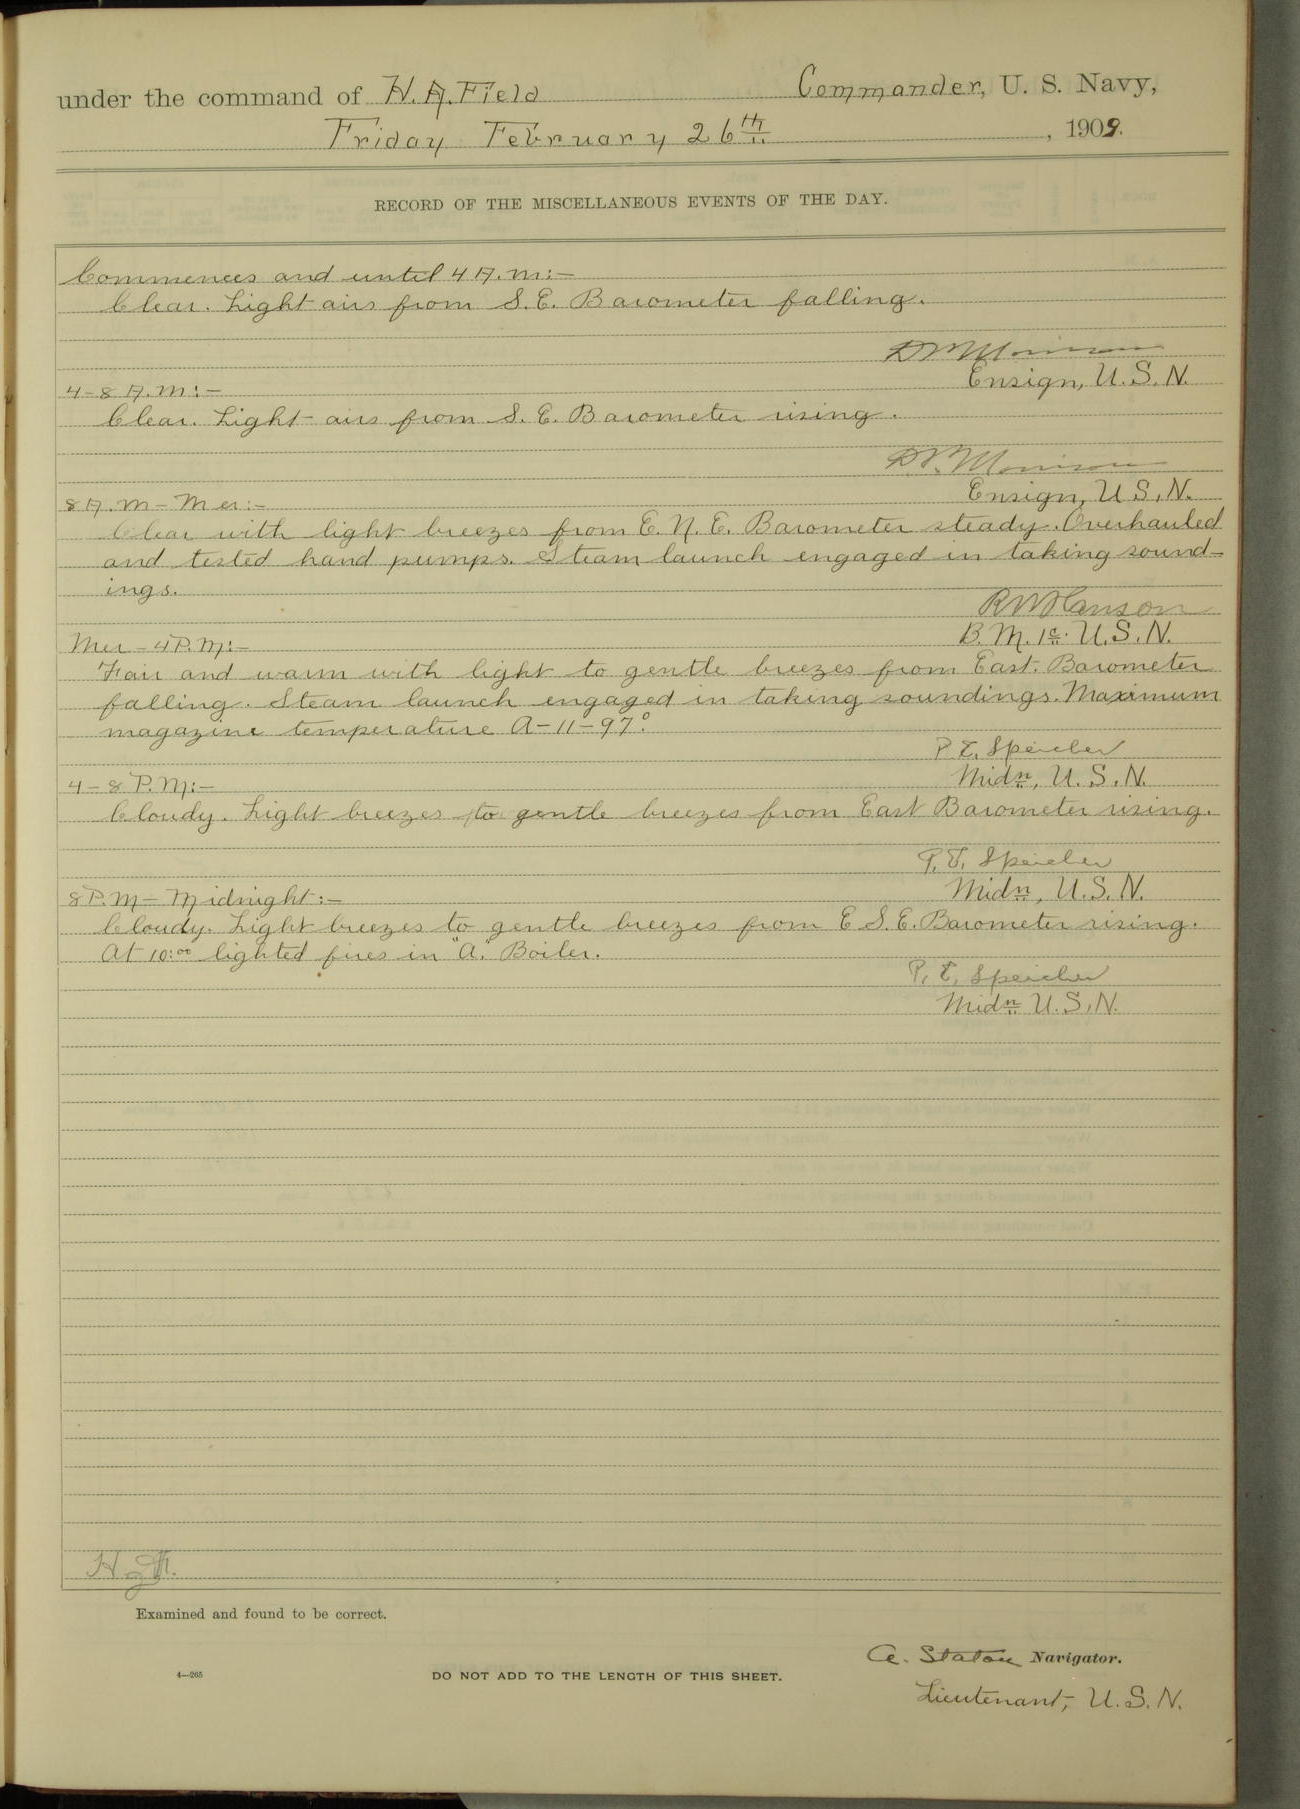 under the command of H. A. Field Commander, U. S. Navy,
Friday February 26th, 1909.
RECORD OF THE MISCELLANEOUS EVENTS OF THE DAY.
Commences and until 4 A.M:-
Clear. Light airs from S. E. Barometer falling.
Ensign, U. S. N.
4-8 A.M:-
Clear. Light airs from S. E. Barometer rising.
Ensign, U S. N.
8 A.M- Mer:-
Clear with light breezes from E. N. E. Barometer steady. Overhauled
and tested hand pumps. Steam launch engaged in taking sound-
ings.
R W Hanson
B. M. 1c. U. S. N.
Mer - 4 P.M:-
Fair and warm with light to gentle breezes from East. Barometer
falling. Steam launch engaged in taking soundings. Maximum
magazine temperature A-11-97°
P. E. Speicher
Midn, U. S. N.
4-8 P.M:-
Cloudy. Light breezes to gentle breezes from East Barometer rising.
P. E. Speicher
Midn, U. S. N.
8 P.M- Midnight:-
Cloudy. Light breezes to gentle breezes from E S. E. Barometer rising.
At 10:00 lighted fires in "A." Boiler.
P. E. Speicher
Midn U. S. N.
Examined and found to be correct.
A. Staton Navigator.
4-265
DO NOT ADD TO THE LENGTH OF THIS SHEET.
Lieutenant, U. S. N.